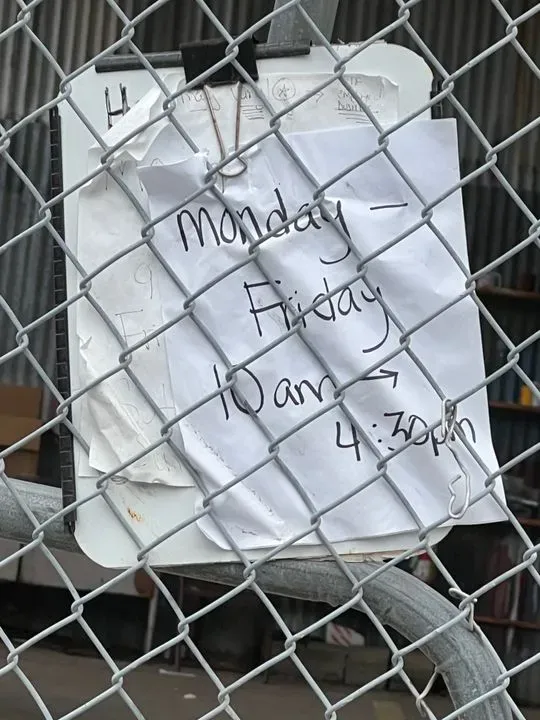 monday –
Friday
10am →
4:30pm